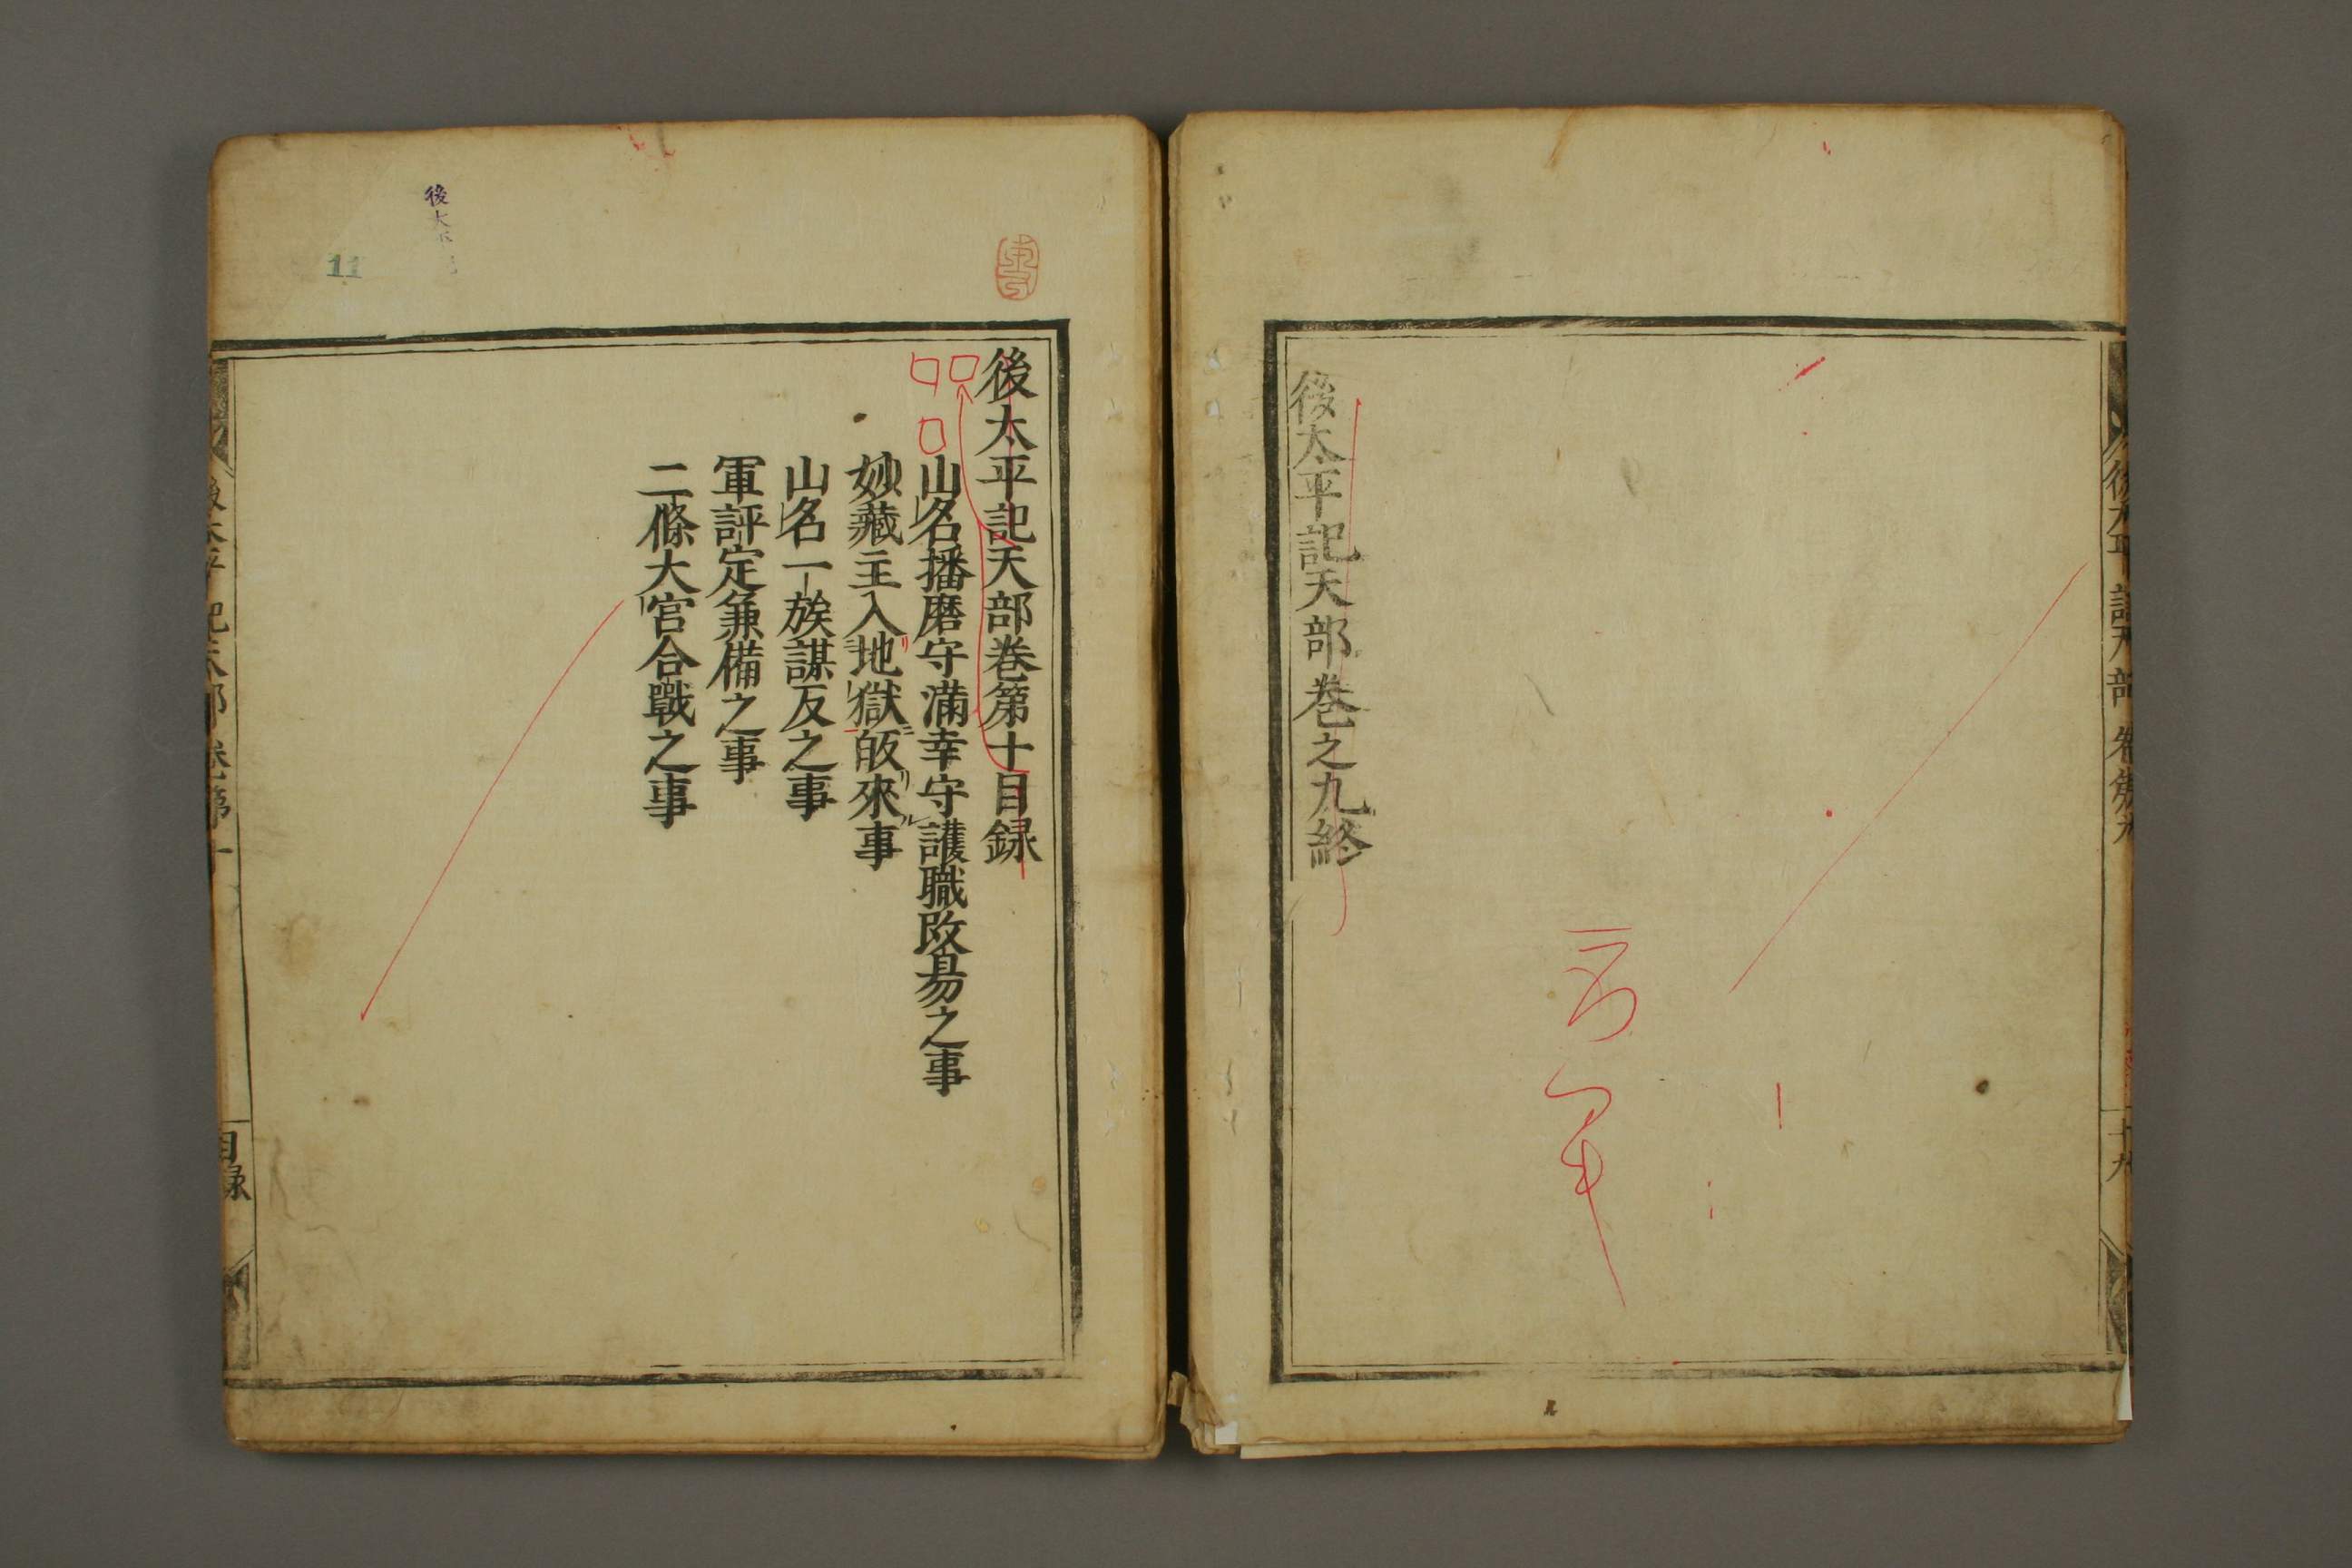 後太平記天部卷第九
十九
後太平記天部卷之九終
後太平記天部卷第十目録
山名播磨守滿幸守護職改易之事
妙藏主入地獄皈來事
山名一族謀反之事
軍評定兼備之事
二條大宮合戰之事
後太平記天部卷第十
目録
後太平記
11